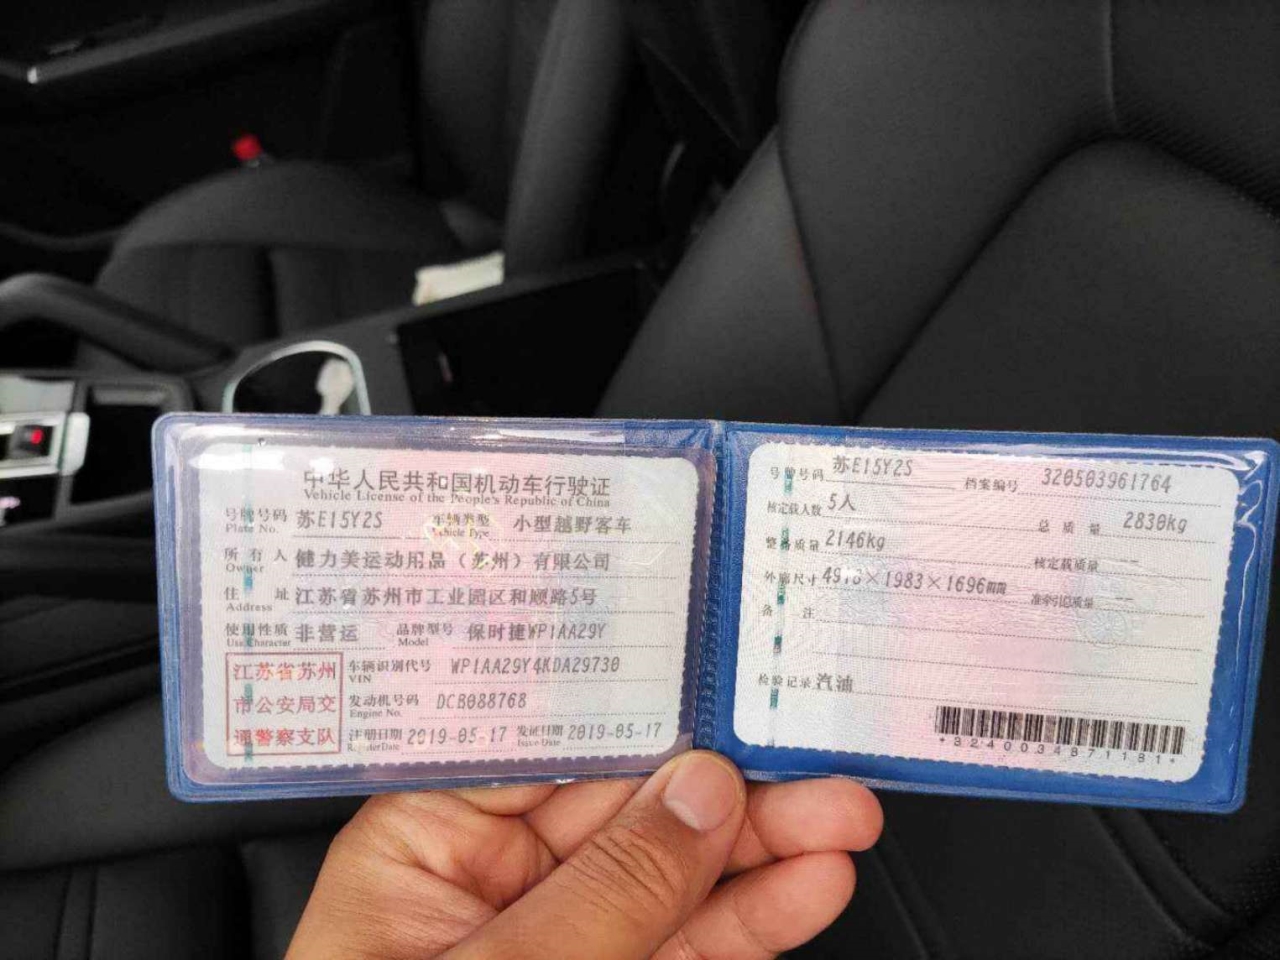 中华人民共和国机动车行驶证
Vehicle License of the People's Republic of China
号牌号码 苏E15Y2S 车辆类型 小型越野客车
Plate No. Vehicle Type
所有人 健力美运动用品（苏州）有限公司
Owner
住址 江苏省苏州市工业园区和顺路5号
Address
使用性质 非营运 品牌型号 保时捷WP1AA29Y
Use Character Model
江苏省苏州
市公安局交
通警察支队
车辆识别代号 WP1AA29Y4KDA29730
VIN
发动机号码 DCB088768
Engine No.
注册日期 2019-05-17 发证日期 2019-05-17
Register Date Issue Date
号牌号码 苏E15Y2S 档案编号 320503961764
核定载人数 5人 总质量 2830kg
整备质量 2146kg 核定载质量 --
外廓尺寸 4918×1983×1696mm 准牵引总质量 --
备注
检验记录 汽油
*3240034871181*